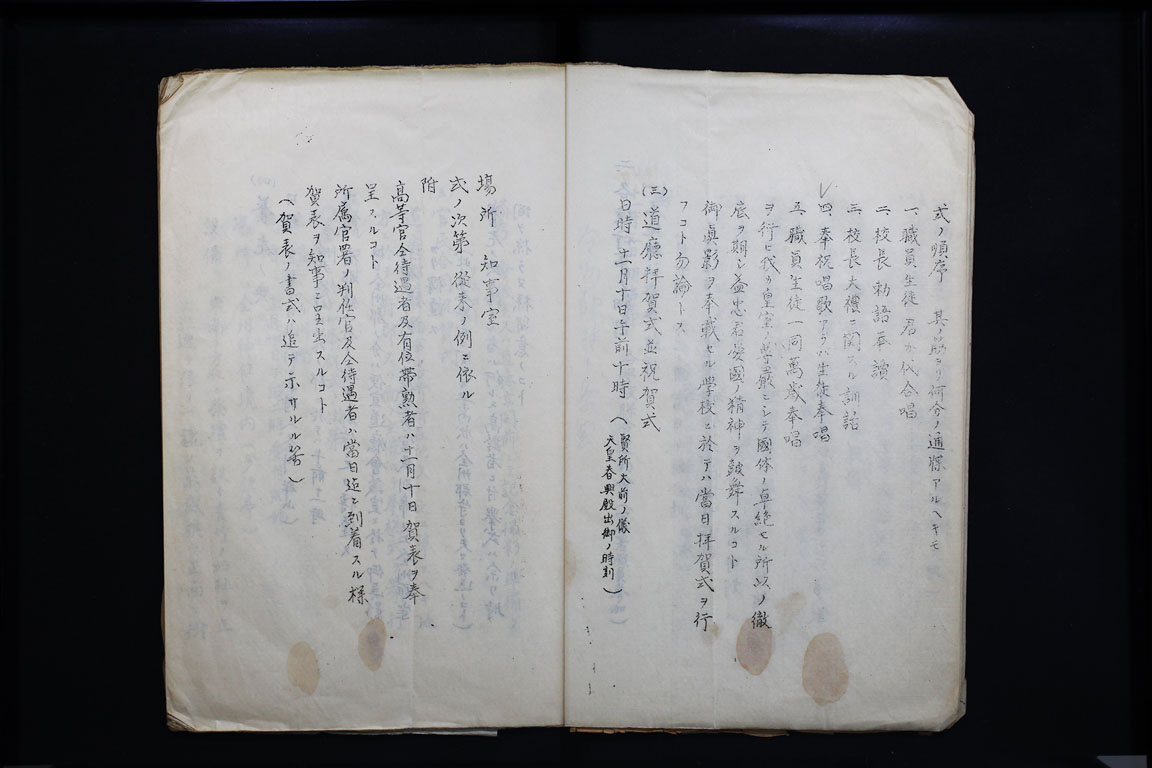 式ノ順序　其筋ヨリ何分ノ通牒アルヘキモ
一、職員生徒君か代合唱
二、校長勅語奉讀
三、校長大禮ニ関スル訓話
四、奉祝唱歌アラハ生徒奉唱
五、職員生徒一同萬歳奉唱
ヲ行ヒ我カ皇室ノ尊嚴ニシテ國体ノ卓絶セル所以ノ徹
底ヲ期シ益忠君愛國ノ精神ヲ鼓舞スルコト
御眞影ヲ奉載セル學校ニ於テハ當日拝賀式ヲ行
フコト勿論トス
(三)道廳拝賀式並祝賀式
日時　十一月十日午前十時（賢所大前ノ儀
天皇春興殿出御ノ時刻）
場所　知事室
式ノ次第従来ノ例ニ依ル
附
高等官仝待遇者及有位帯勲者ハ十一月十日賀表ヲ奉
呈スルコト
所属官署ノ判任官及仝待遇者ハ當日迄ニ到着スル様
賀表ヲ知事ニ呈出スルコト
（賀表ノ書式ハ追テ示サルル筈）